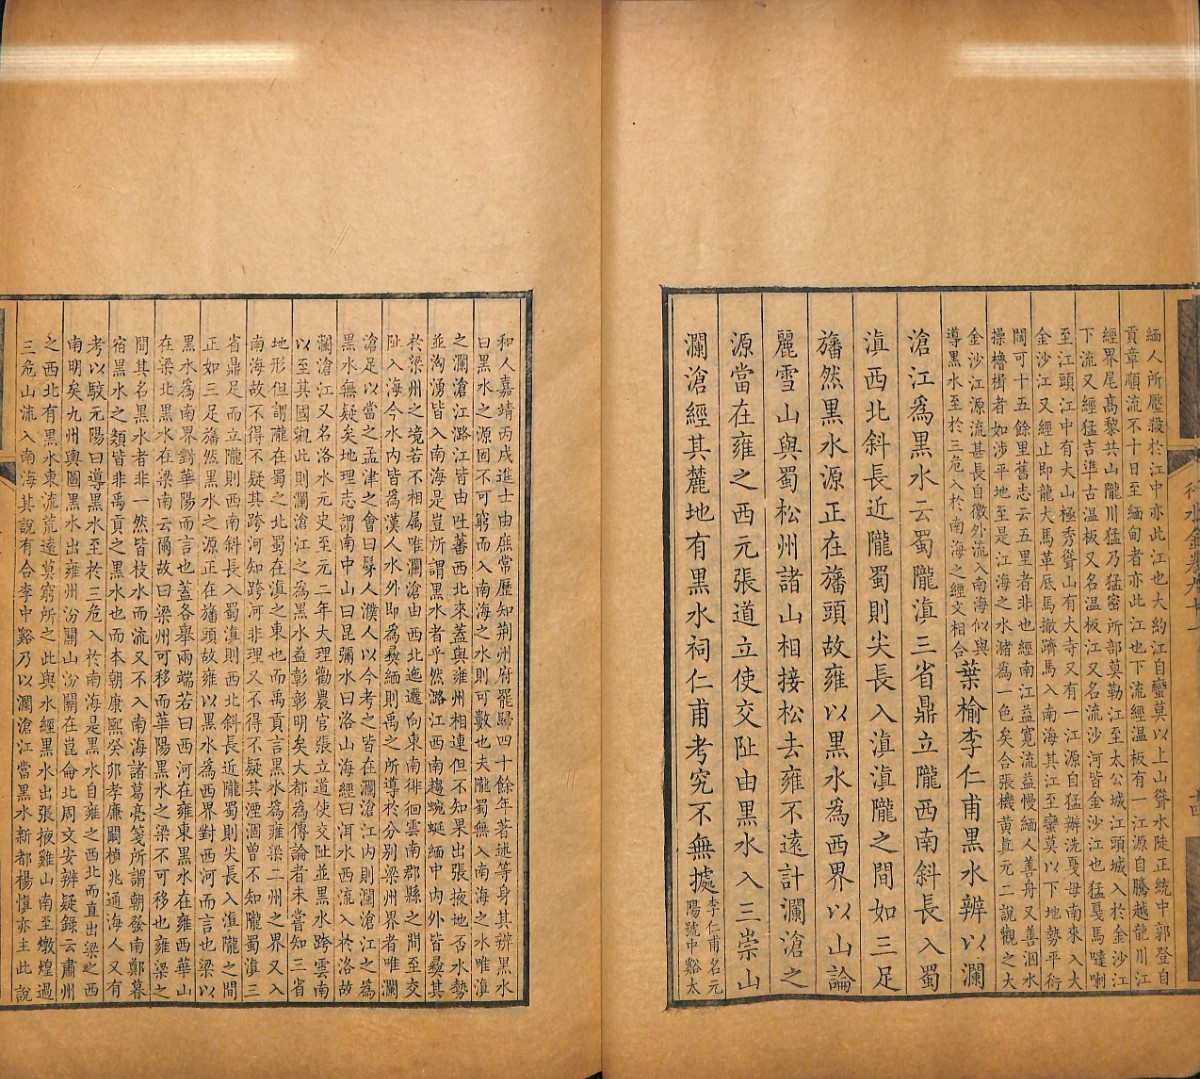 緬人所壓殺於江中亦此江也大約江自蠻莫以上山聳水陡正統中郭登自
貢章順流不十日至緬甸者亦此江也下流經溫板有一江源自騰越龍川江
經界尾髙黎共山隴川猛乃猛密所部莫勒江至太公城江頭城入於金沙江
下流又經猛吉準古溫板又名溫板江又名流沙河皆金沙江也猛戛馬噠喇
至江頭江中有大山極秀聳山有大寺又有一江源自猛辦洗戛母南來入大
金沙江又經止即龍大馬革底馬撤躋馬入南海其江至蠻莫以下地勢平衍
闊可十五餘里舊志云五里者非也經南江益寛流益慢緬人善舟又善泅水
操櫓楫者如涉平地至是江海之水潴為一色矣合張機黄貞元二說觀之大
金沙江源流甚長自徼外流入南海似與
導黒水至於三危入於南海之經文相合
葉榆李仁甫黒水辨以瀾
滄江爲黒水云蜀隴滇三省鼎立隴西南斜長入蜀
滇西北斜長近隴蜀則尖長入滇滇隴之間如三足
旛然黒水源正在旛頭故雍以黒水為西界以山論
麗雪山與蜀松州諸山相接松去雍不遠計瀾滄之
源當在雍之西元張道立使交阯由黒水入三崇山
瀾滄經其麓地有黒水祠仁甫考究不無㨿
李仁甫名元
陽號中谿太
和人嘉靖丙戌進士由庶常歴知荆州府罷歸四十餘年著述等身其辨黒水
曰黒水之源固不可窮而入南海之水則可數也夫隴蜀無入南海之水唯滇
之瀾滄江潞江皆由吐蕃西北來蓋與雍州相連但不知果出張掖地否水勢
並洶湧皆入南海是豈所謂黒水者乎然潞江西南趨蜿蜒緬中内外皆彜其
於梁州之境若不相属唯瀾滄由西北迤邐向東南徘徊雲南郡縣之間至交
阯入海今水内皆為漢人水外即為彜緬則禹之所導於分别梁州界者唯瀾
滄足以當之孟津之會曰髳人濮人以今考之皆在瀾滄江内則瀾滄江之為
黒水無疑矣地理志謂南中山曰昆彌水曰洛山海經曰洱水西流入於洛故
瀾滄江又名洛水元史至元二年大理勸農官張立道使交阯並黒水跨雲南
以至其國觀此則瀾滄江之爲黒水益彰彰明矣大都為傳論者未嘗知三省
地形但謂隴在蜀之北蜀在滇之東也而禹貢言黒水為雍梁二州之界又入
南海故不得不疑其跨河知跨河非理又不得不疑其湮涸曽不知隴蜀滇三
省鼎足而立隴則西南斜長入蜀滇則西北斜長近隴蜀則尖長入滇隴之間
正如三足旛然黒水之源正在旛頭故雍以黒水為西界對西河而言也梁以
黒水爲南界對華陽而言也蓋各舉兩端若曰西河在雍東黒水在雍西華山
在梁北黒水在梁南云爾故曰梁州可移而華陽黒水之梁不可移也雍梁之
間其名黒水者非一然皆枝水而流又不入南海諸葛亮箋所謂朝發南鄭暮
宿黒水之類皆非禹貢之黒水也而本朝康熙癸卯孝廉闞禎兆通海人又有
考以駮元陽曰導黒水至於三危入於南海是黒水自雍之西北而直出梁之西
南明矣九州輿圖黒水出雍州汾關山汾關在崑侖北周文安辨疑録云肅州
之西北有黒水東流荒遠莫窮所之此與水經黒水出張掖雞山南至燉煌過
三危山流入南海其說有合李中谿乃以瀾滄江當黒水新都楊慎亦主此說